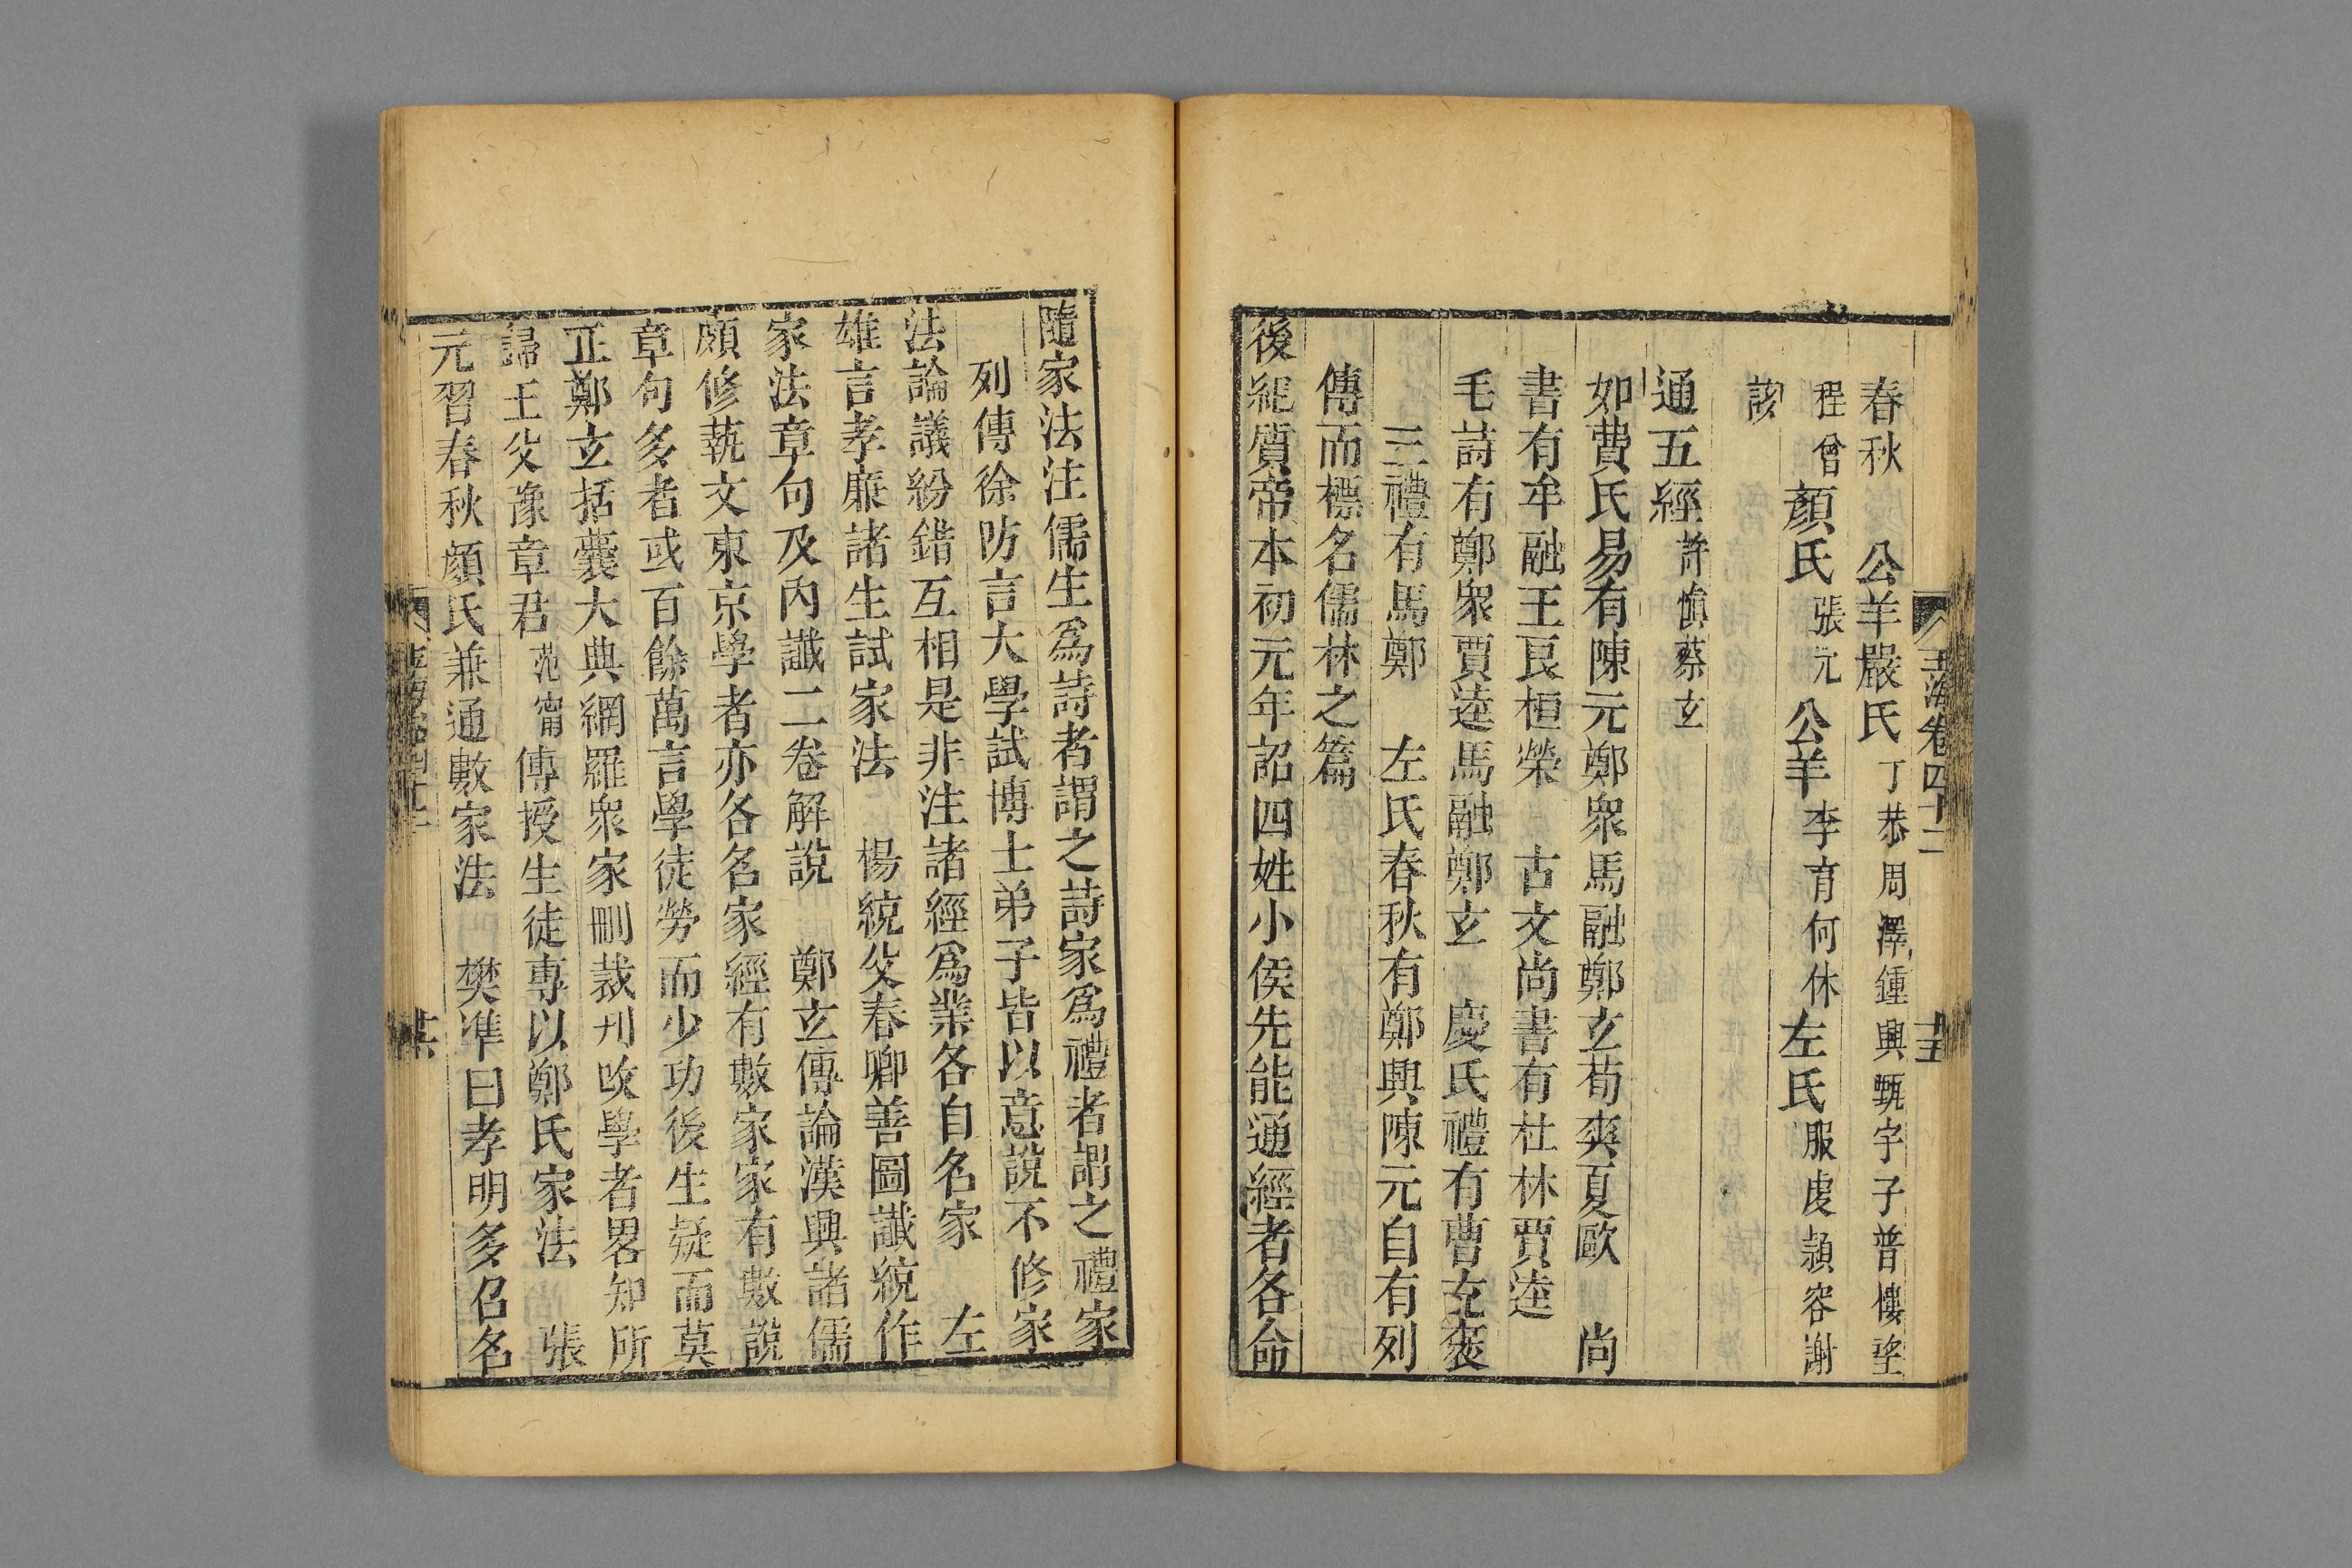 玉海卷四十二
春秋 公羊嚴氏丁恭周澤鍾興甄宇子普樓望
程曾顏氏張元公羊李育何休左氏服虔潁容謝
該
通五經許慎蔡玄
如費氏易有陳元鄭眾馬融鄭玄荀爽夏歐 尚
書有牟融王良桓榮 古文尚書有杜林賈逵
毛詩有鄭眾賈逵馬融鄭玄 慶氏禮有曹充褒
三禮有馬鄭 左氏春秋有鄭興陳元自有列
傳而標名儒林之篇
後紀質帝本初元年詔四姓小侯先能通經者各命
隨家法注儒生為詩者謂之詩家為禮者謂之禮家
列傳徐防言大學試博士弟子皆以意說不修家
法論議紛錯互相是非注諸經為業各自名家 左
雄言孝廉諸生試家法 楊統父春卿善圖讖統作
家法章句及內讖二卷解說 鄭玄傳論漢興諸儒
頗修蓺文東京學者亦各名家經有數家家有數說
章句多者或百餘萬言學徒勞而少功後生疑而莫
正鄭玄括囊大典網羅眾家刪裁刋改學者畧知所
歸王父豫章君范甯傳授生徒專以鄭氏家法 張
元習春秋顏氏兼通數家法 樊準曰孝明多召名